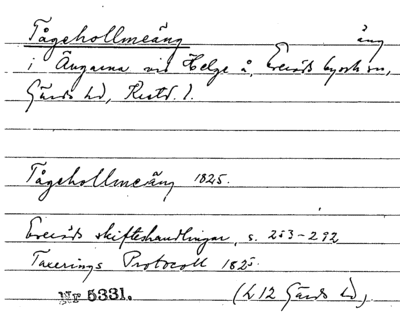 Tågehollmeäng äng
i Ängarna vid Helge å, Everöds by och sn,
Gärds hd, Krstd. l.
Tågehollmeäng 1825.
Everöds skifteshandlingar, s. 253-292
Taxerings Protocoll 1825.
Nr 5331. (L 12 Gärds hd)